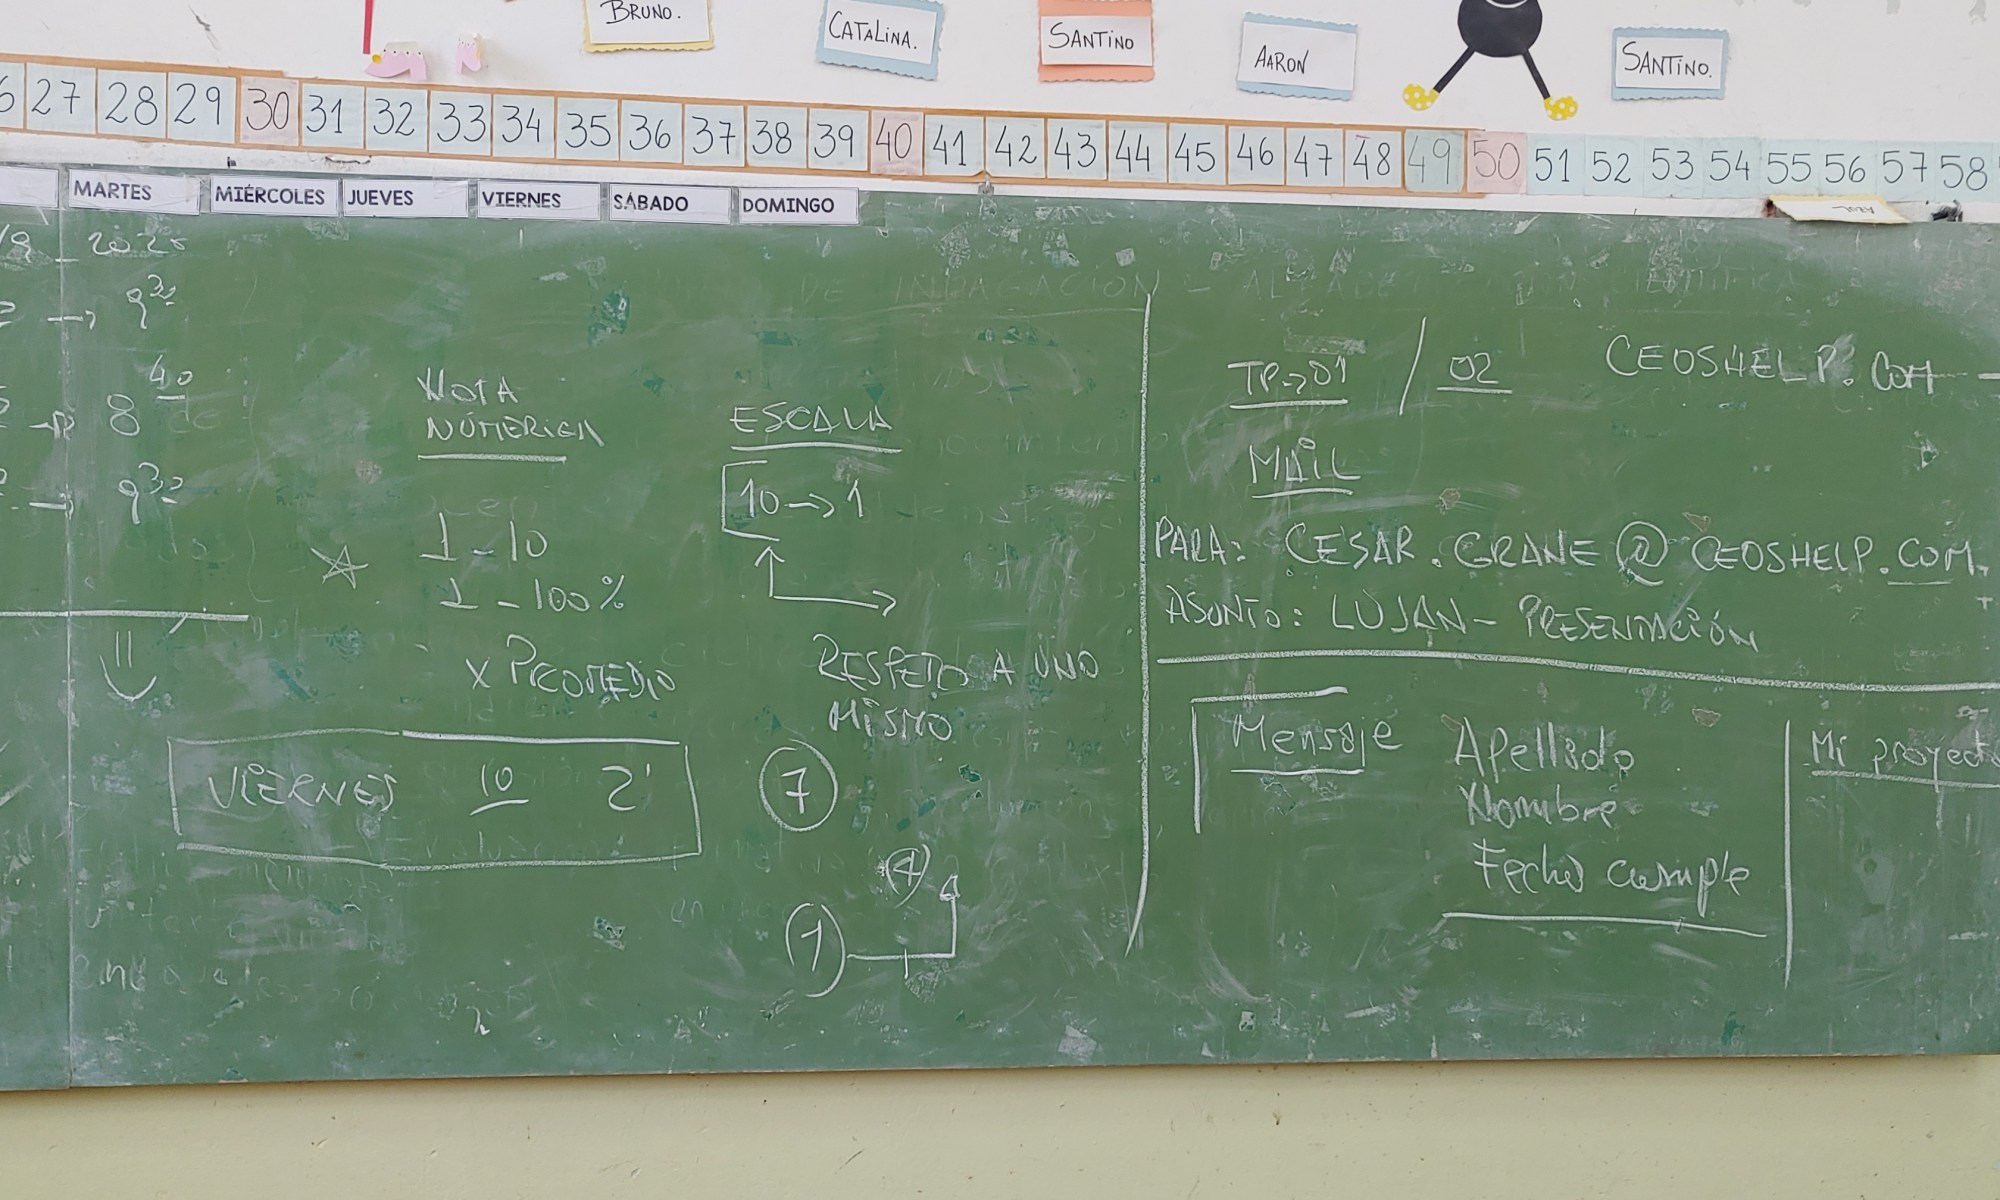 BRUNO.
CATALINA.
SANTINO
AARON
SANTINO.
27 28 29 30 31 32 33 34 35 36 37 38 39 40 41 42 43 44 45 46 47 48 49 50 51 52 53 54 55 56 57 58
MARTES MIÉRCOLES JUEVES VIERNES SÁBADO DOMINGO
→ 9 32
→ 8 40
→ 9 32
NOTA
NÚMERICA
1 - 10
1 - 100%
X PROMEDIO
VIERNES 10 2'
ESCALA
10 → 1
RESPETO A UNO
MISMO
7
4
1
DE INDAGACIÓN
TP → 01 / 02
CEOSHELP.COM
MAIL
PARA: CESAR.GRANE@CEOSHELP.COM
ASUNTO: LUJAN - PRESENTACIÓN
Mensaje
Apellido
Nombre
Fecha cumple
Mi proyecto